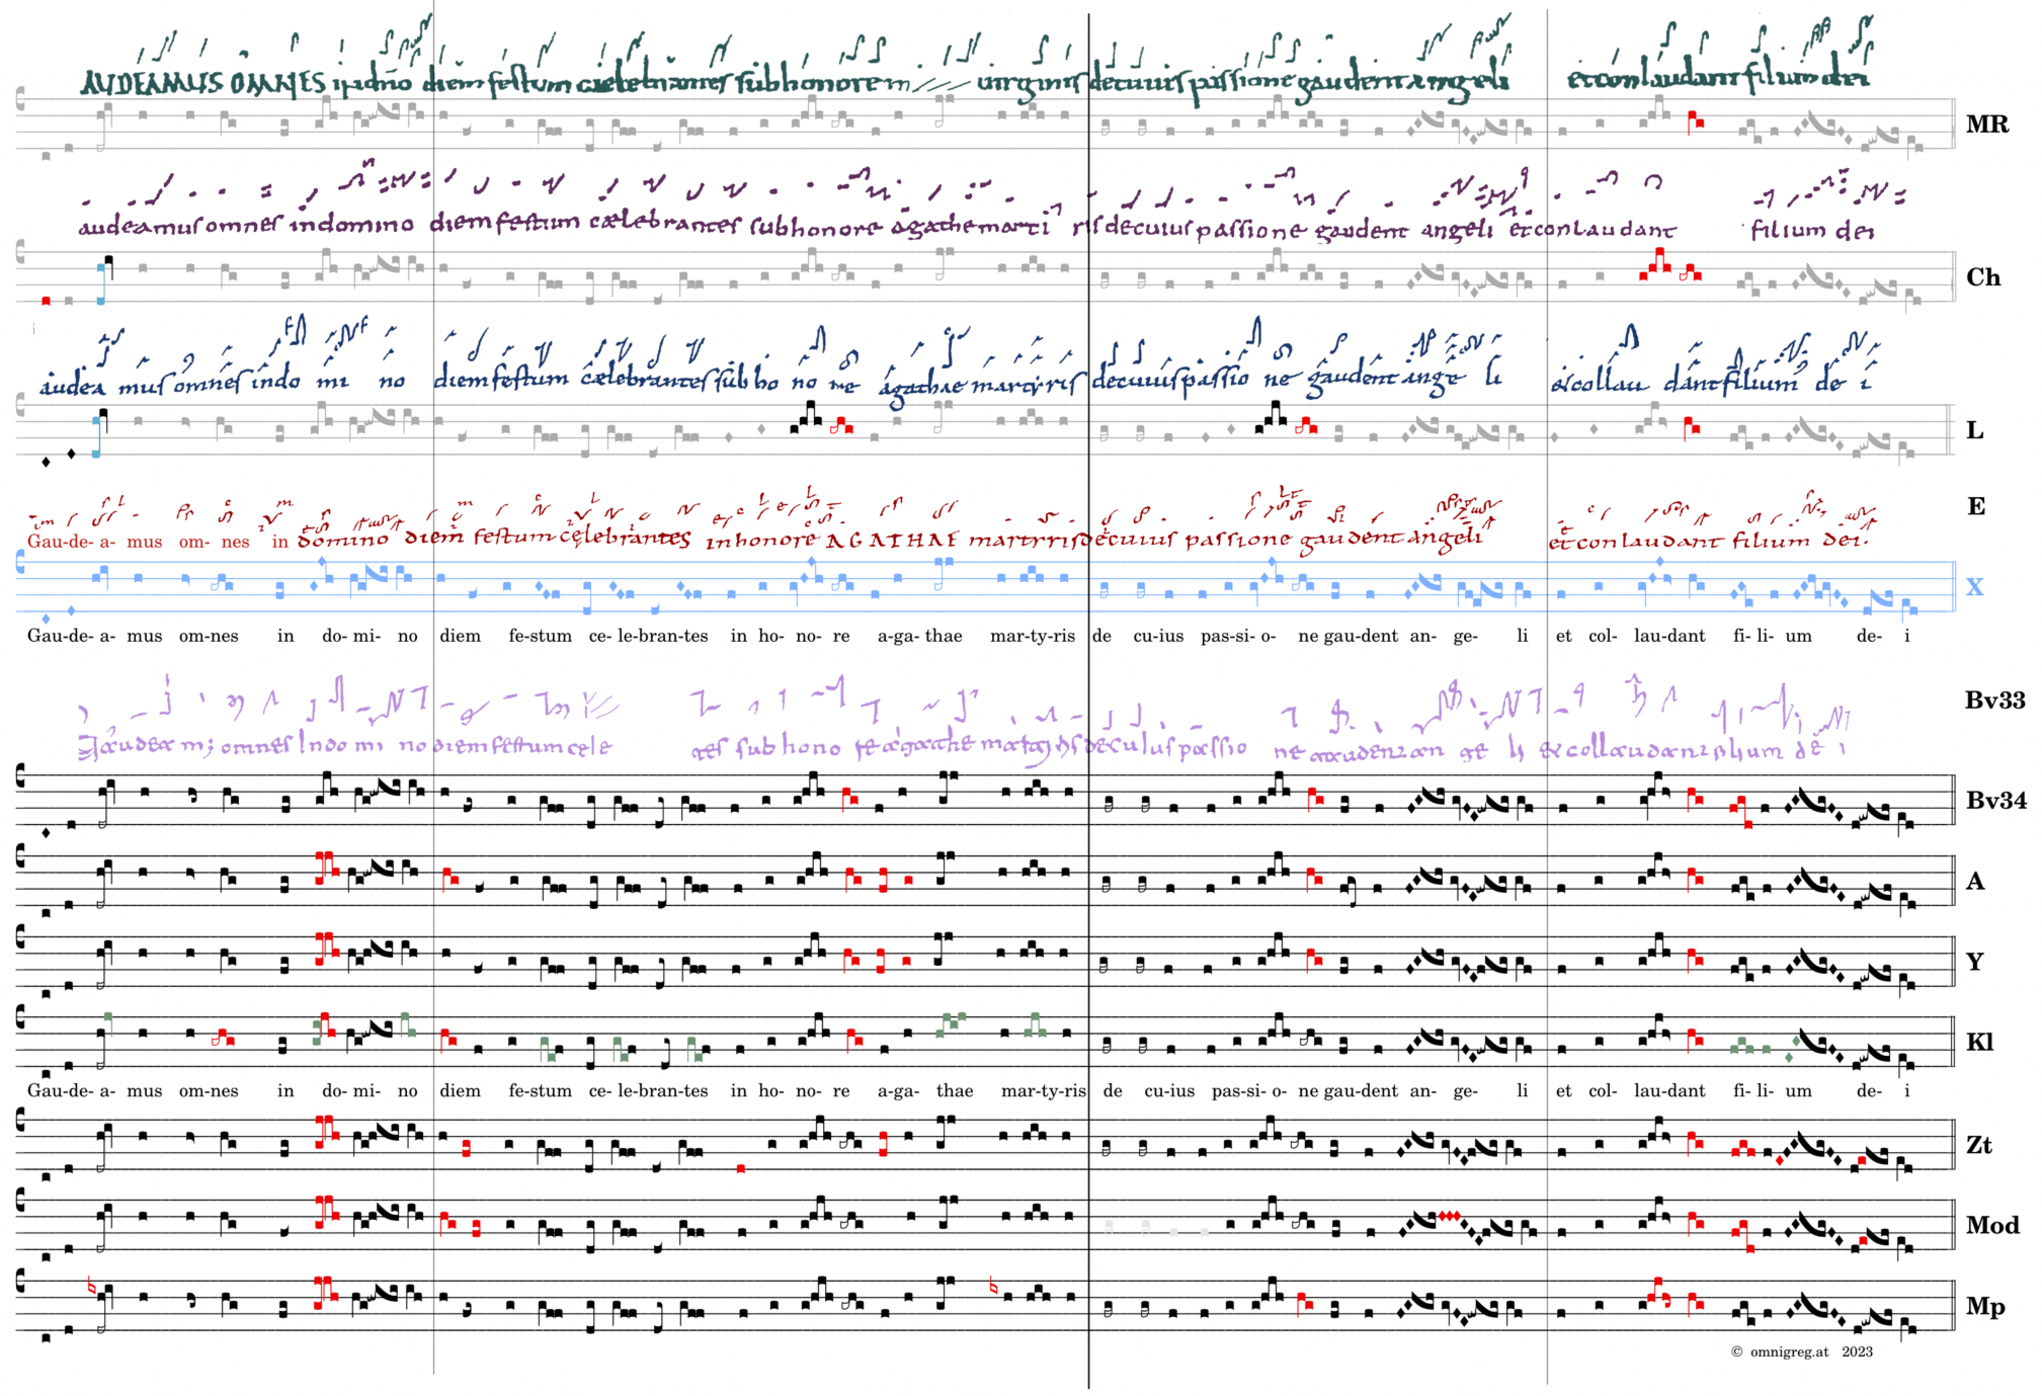 AUDEAMUS OMNES in dño diem festum celebrantes sub honorem virginis de cuius passione gaudent angeli et conlaudant filium dei
MR
audeamus omnes in domino diem festum cælebrantes sub honore agathe martiris de cuius passione gaudent angeli et conlaudant filium dei
Ch
audea mus omnes indo mi no diem festum cælebrantes sub ho no re agathae martyris de cuius passio ne gaudent ange li et collau dant filium de i
L
Gau-de- a- mus om- nes in domino diem festum celebrantes in honore AGATHAE martyris de cuius passione gaudent angeli et conlaudant filium dei.
E
X
Gau-de- a- mus om-nes in do- mi- no diem fe-stum ce- le-bran-tes in ho- no- re a-ga- thae mar-ty-ris de cu-ius pas-si- o- ne gau-dent an- ge- li et col- lau-dant fi- li- um de- i
Bv33
omnes Indo mi no diem festum cele sub hono re agathe de cuius passio ne an ge li et filium de i
Bv34
A
Y
Kl
Gau-de- a- mus om-nes in do- mi- no diem fe-stum ce- le-bran-tes in ho- no- re a-ga- thae mar-ty-ris de cu-ius pas-si- o- ne gau-dent an- ge- li et col- lau-dant fi- li- um de- i
Zt
Mod
Mp
© omnigreg.at 2023